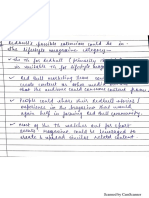 Redbull's possible extension could be in
the lifestyle magazine category -
✓ The TG for Redbull (primarily
is suitable TG for lifestyle magazine
✓ Red Bull marketing team
create content on other media
that the audience could consume content from.
✓ People could share their Redbull stories /
experiences in the magazine that would
again help in forming Red Bull community
✓ Most of the TG watches out for sport
magazine could be leveraged to
create & spread similar related content
Scanned by CamScanner